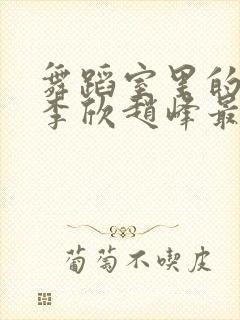 舞蹈室里的
李欣赵峰最
葡萄不喫皮